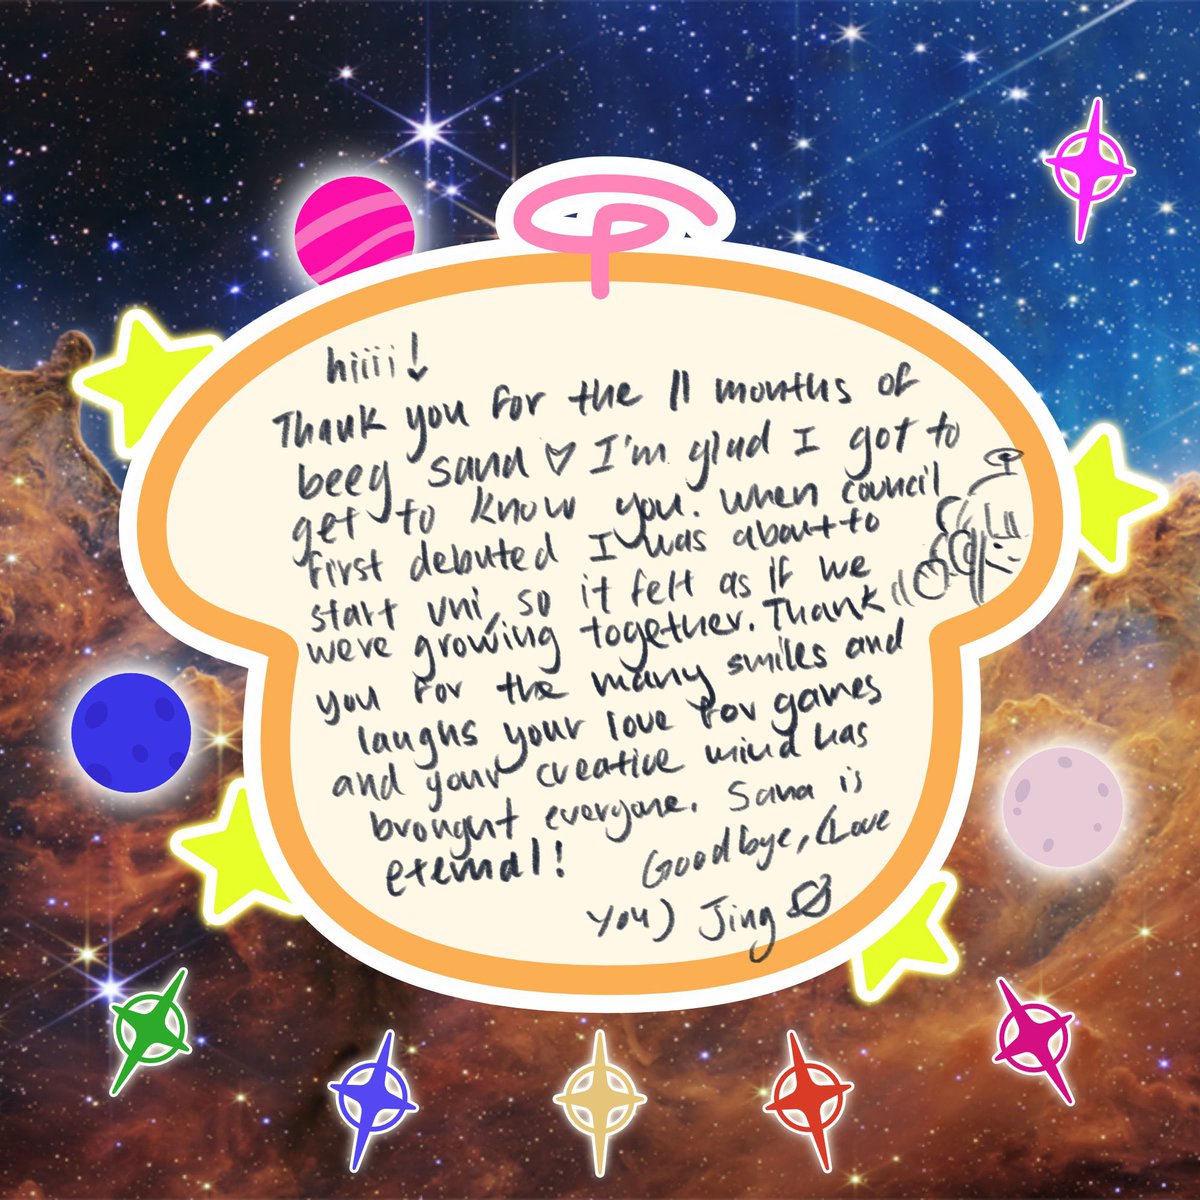 hiiii!
Thank you for the 11 months of
beeg sana ♡ I'm glad I got to
get to know you. When council
first debuted I was about to
start uni, so it felt as if we
were growing together. Thank
you for the many smiles and
laughs your love for games
and your creative mind has
brought everyone. Sana is
eternal!
Goodbye, (Love
you) Jing